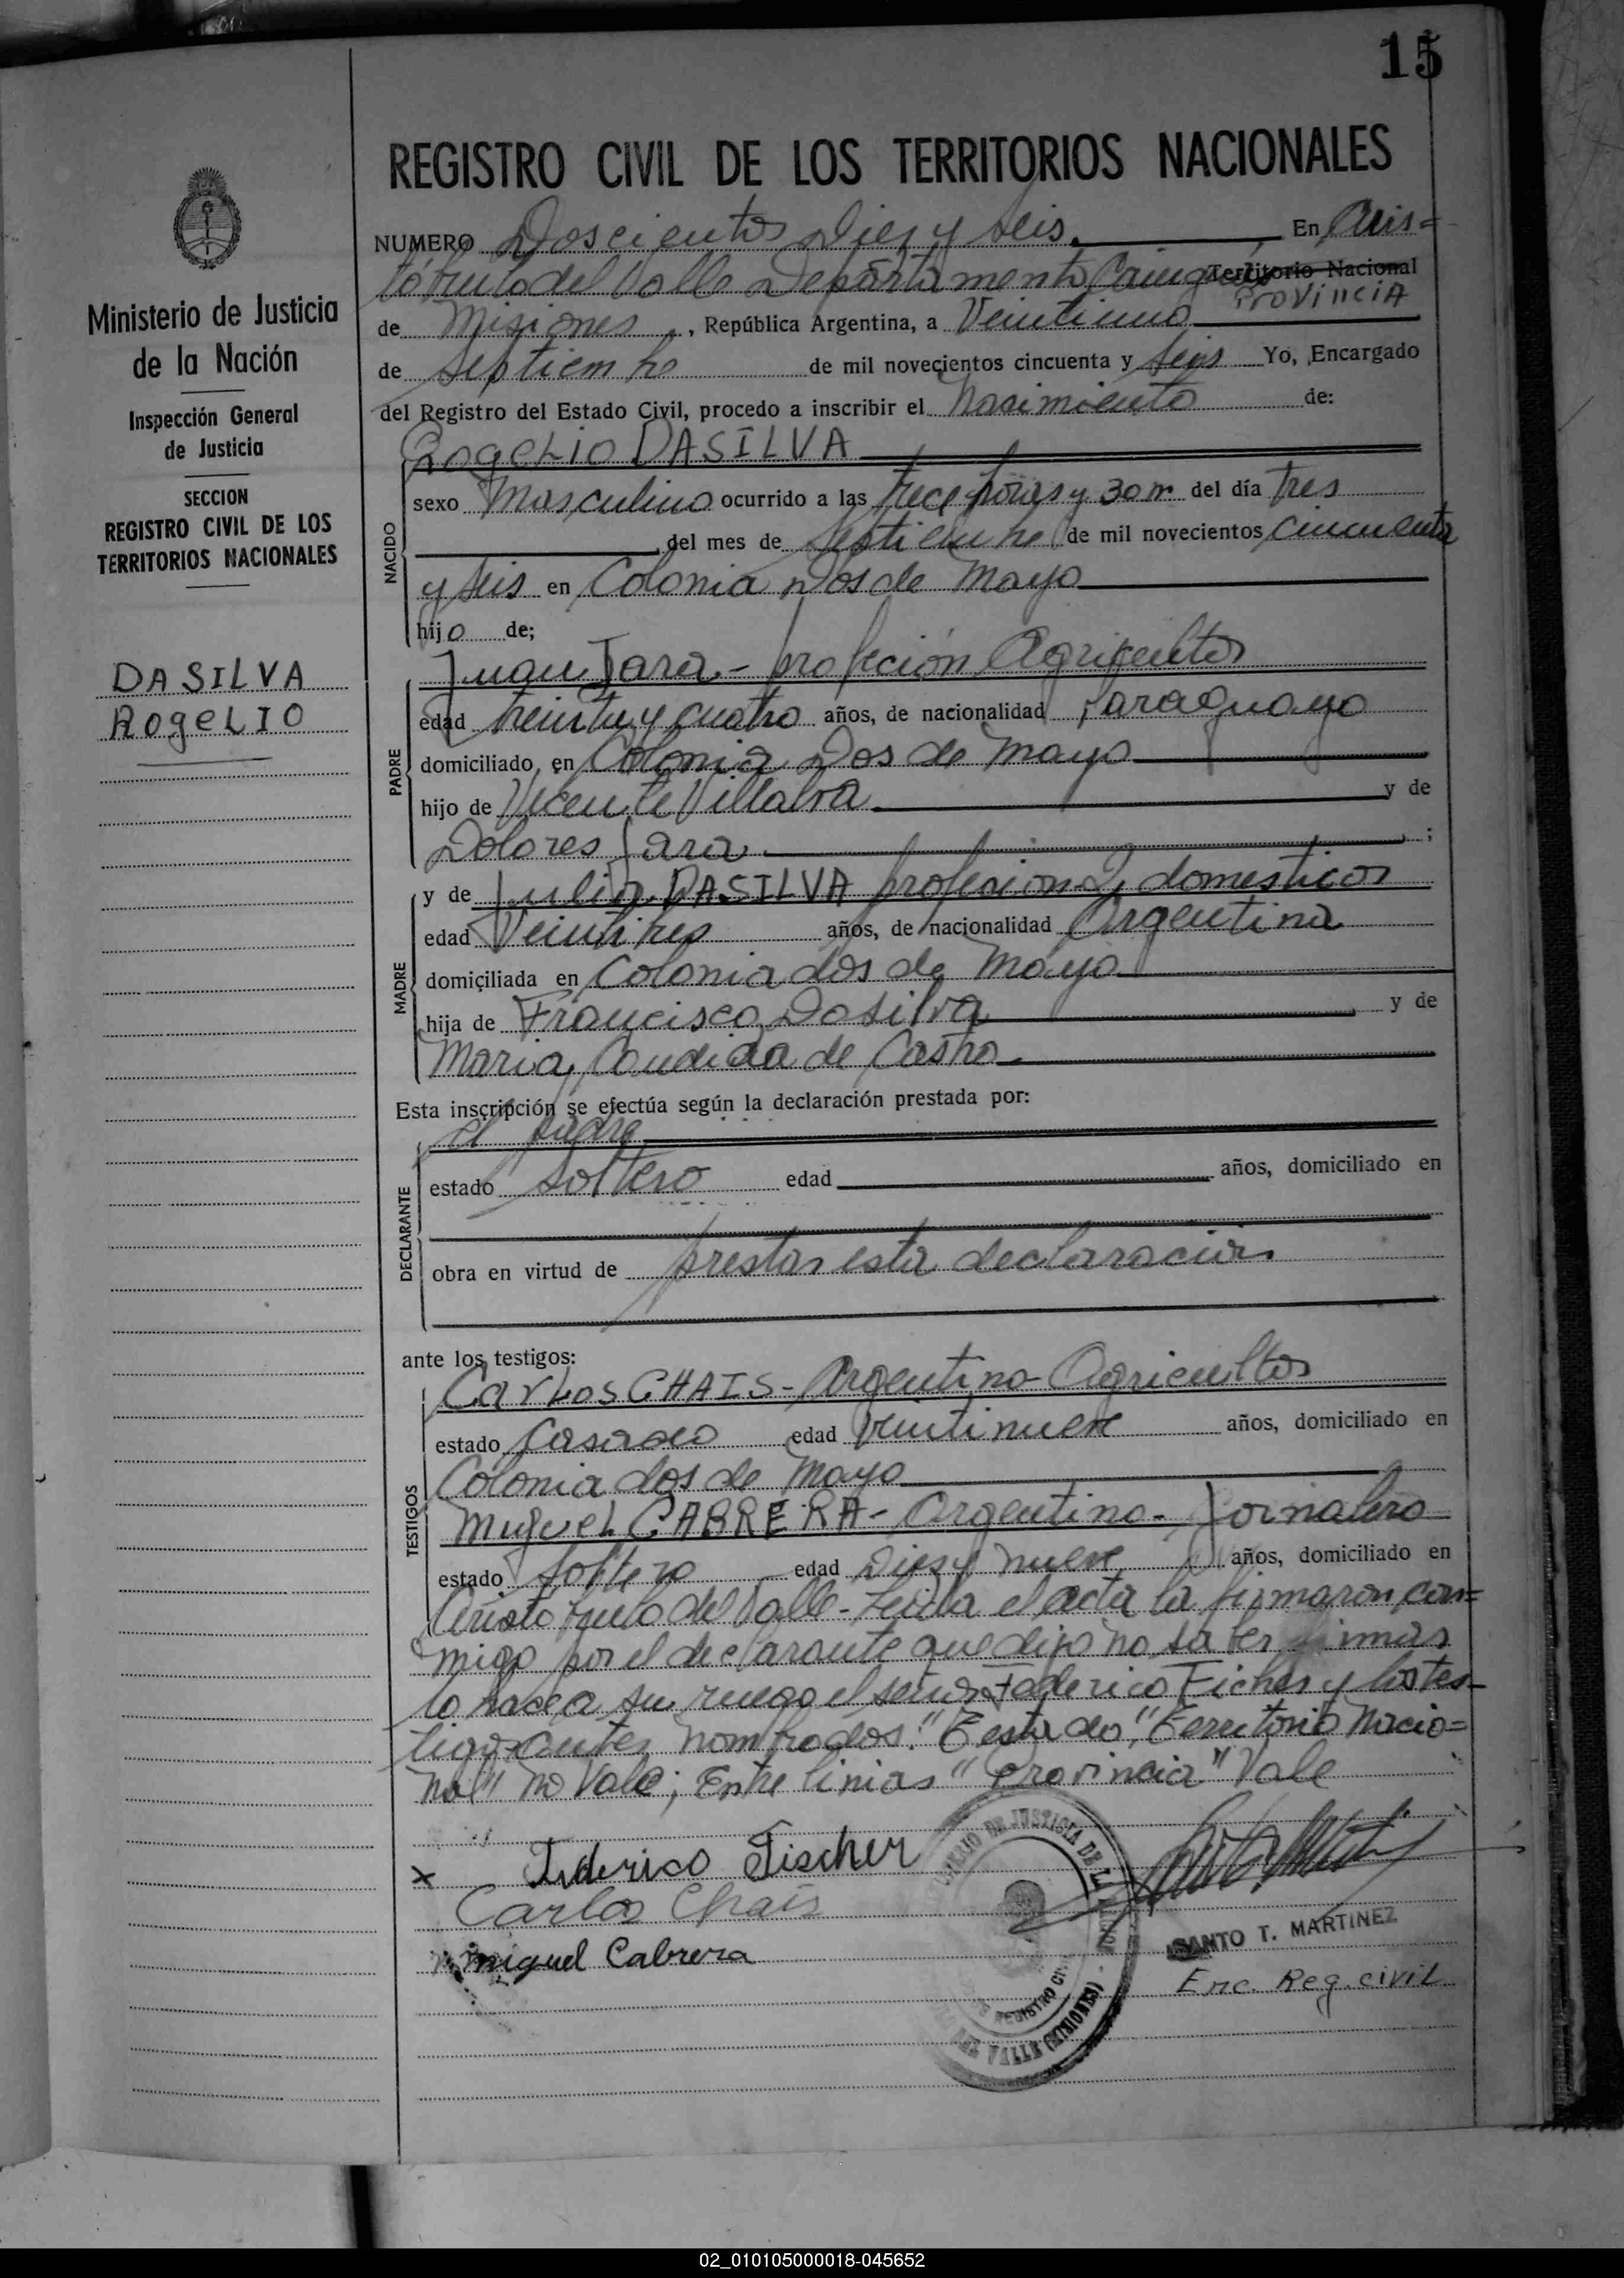 15
REGISTRO CIVIL DE LOS TERRITORIOS NACIONALES
Ministerio de Justicia
de la Nación
Inspección General
de Justicia
SECCION
REGISTRO CIVIL DE LOS
TERRITORIOS NACIONALES
DASILVA
RogeLIO
NUMERO Doscientos Diez y seis. En Aris=
tóbulo del Valle Departamento Cainguás Territorio Nacional
PROVINCIA
de Misiones, República Argentina, a Veintiuno
de septiembre de mil novecientos cincuenta y seis Yo, Encargado
del Registro del Estado Civil, procedo a inscribir el Nacimiento de:
RogeLIO DASILVA
NACIDO
sexo Masculino ocurrido a las trece horas y 30 m. del día Tres
del mes de septiembre de mil novecientos cincuenta
y seis en Colonia Dos de Mayo
hijo de;
PADRE
Juan Jara - profeción Agricultor
edad treinta y cuatro años, de nacionalidad paraguayo
domiciliado en Colonia Dos de Mayo
hijo de Vicente Villalva y de
Dolores Jara ;
MADRE
y de Julia DASILVA profesion Q. domesticos
edad Veintitres años, de nacionalidad Argentina
domiciliada en Colonia dos de Mayo
hija de Francisco Dasilva y de
Maria Candida de Castro
Esta inscripción se efectúa según la declaración prestada por:
DECLARANTE
el padre
estado soltero edad años, domiciliado en
obra en virtud de prestar esta declaración
ante los testigos:
TESTIGOS
CarLos CHAIS - Argentino - Agricultor
estado Casado edad Veintinueve años, domiciliado en
Colonia dos de Mayo
MigueL CABRERA - Argentino - Jornalero
estado Soltero edad Dies y nueve años, domiciliado en
Aristobulo del Valle - Leida el acta la firmaron con=
migo por el declarante que dijo no saber firmar
lo hace a su ruego el señor Federico Ficher y los tes-
tigos antes nombrados. "Testado", "Territorio Nacio=
nal" no Vale; Entre linias "Provincia" Vale
x Federico Fischer
Carlos Chais
Miguel Cabrera
MINISTERIO DE JUSTICIA DE LA NACION
REGISTRO CI
DEL VALLE (MISIONES)
SANTO T. MARTINEZ
Enc. Reg. civiL
02_010105000018-045652